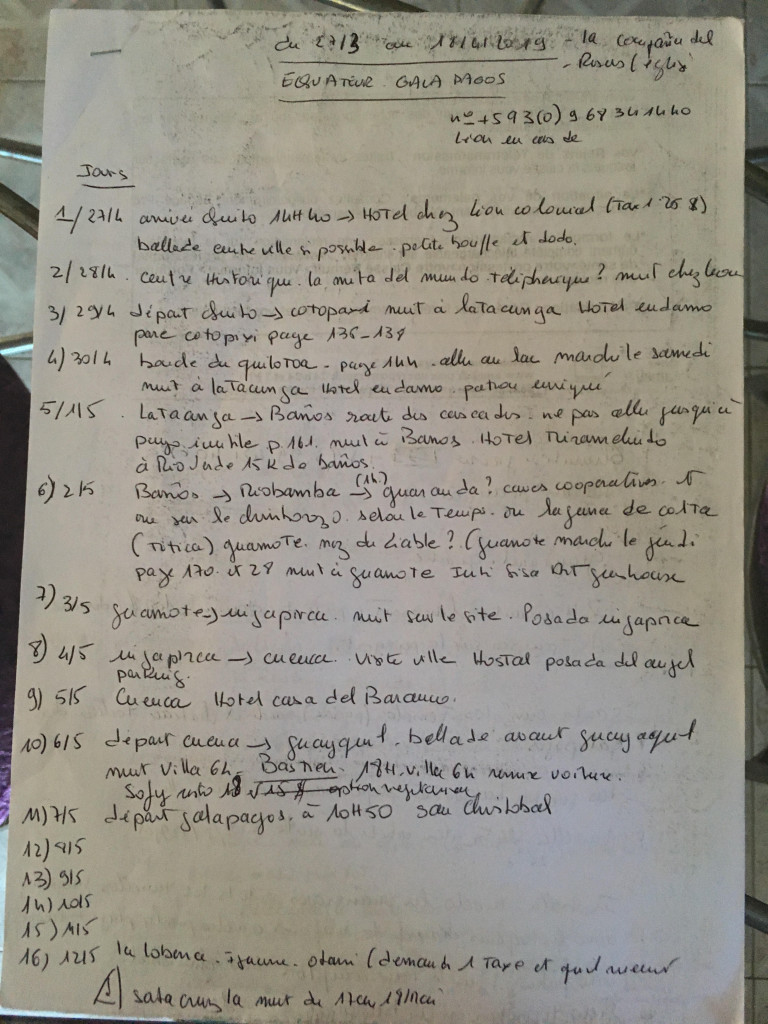 du 27/3 au 18/4/2019 - la compañia del
EQUATEUR GALAPAGOS
n° +593(0) 9 68 34 14 40
Lion en cas de
Jours
1/ 27/4 arrivée Quito 14H40 → HOTEL chez Lion colonial (Taxi 25 $)
ballade centre ville si possible. petite bouffe et dodo.
2/ 28/4. centre Historique. la mita del mundo. téléphérique? nuit chez leon
3/ 29/4 départ Quito → cotopaxi nuit à laTacunga Hotel endamo
parc cotopixi page 136-139
4) 30/4 boucle du quilotoa - page 144. aller au lac marché le samedi
nuit à laTacunga Hotel endamo. patron enriqué
5/ 1/5. LaTaanga → Baños route des cascades. ne pas aller jusqu'à
puyo inutile p 161. nuit à Banos. Hotel Miramelindo
à Rio Verde 15K de baños.
6) 2/5 Baños → Riobamba (1h) → guaranda? caves cooperatives. et
ou sur le chimborazo. selon le Temps. ou laguna de colta
(TiTica) guamoTe. nez du diable? (guamote marché le jeudi
page 170. et 28 nuit à guamote Inti Sisa guesthouse
7) 3/5 guamote → ingapirca. nuit sur le site. Posada ingapirca
8) 4/5 ingapirca → cuenca. visite ville Hostal posada del angel
parking.
9) 5/5 Cuenca Hotel casa del Baranco.
10) 6/5 départ cuenca → guayquil. ballade avant guayaquil
nuit Villa 64. Bastien. 18H. villa 64 remise voiture.
Sofy resto 18 $ 15 $ option vegetarien
11) 7/5 départ galapagos. à 10H50 san christobal
12) 8/5
13) 9/5
14) 10/5
15) 11/5
16) 12/5 la loberia
santa cruz la nuit de 17 au 18/mai